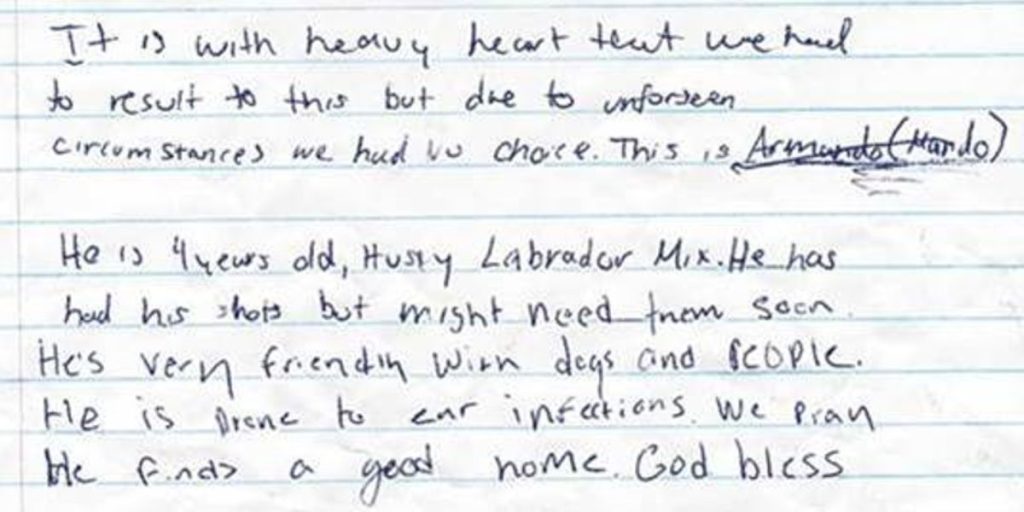 It is with heavy heart that we had
to result to this but due to unforseen
circumstances we had no choice. This is Armando (Mando)
He is 4 years old, Husky Labrador Mix. He has
had his shots but might need them soon.
He's very friendly with dogs and PEOPLE.
He is prone to ear infections. We pray
He finds a good home. God bless